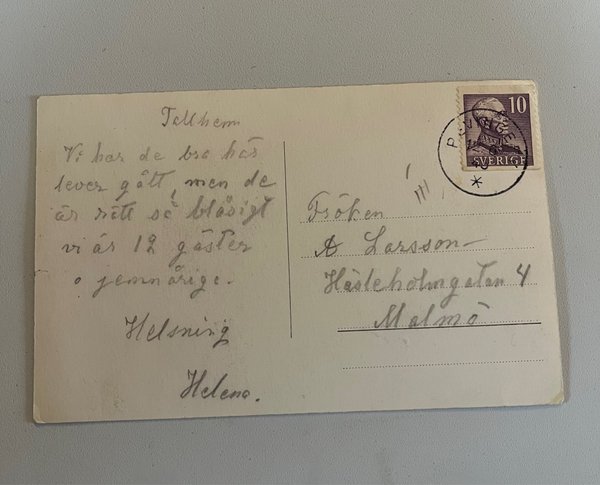 Tallhem
Vi har de bra här
lever gått, men de
är rätt så blåsigt
vi är 12 gäster
o jemnårige.
Helsning
Helena.
10
SVERIGE
Fröken
A Larsson
Hästeholmgatan 4
Malmö